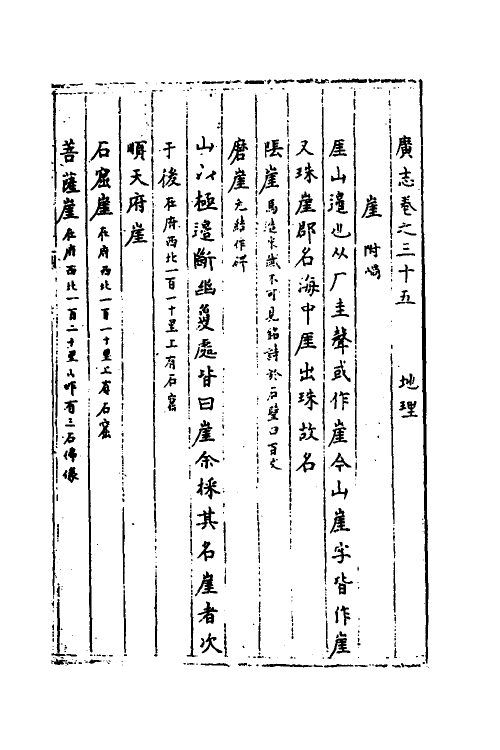 廣志卷之三十五　地理
崖 附
厓山邉也从厂圭聲或作崖今山崖字皆作崖
又珠崖郡名海中厓出珠故名
崖馬造宋纖不可見銘詩於石壁曰百丈
磨崖元結作碑
山以極邉斷處皆曰崖余採其名崖者次
于後在府西北一百一十里上有石窟
順天府崖
石窟崖在府西北一百一十里上有石窟
菩薩崖在府西北一百二十里山有三石佛像